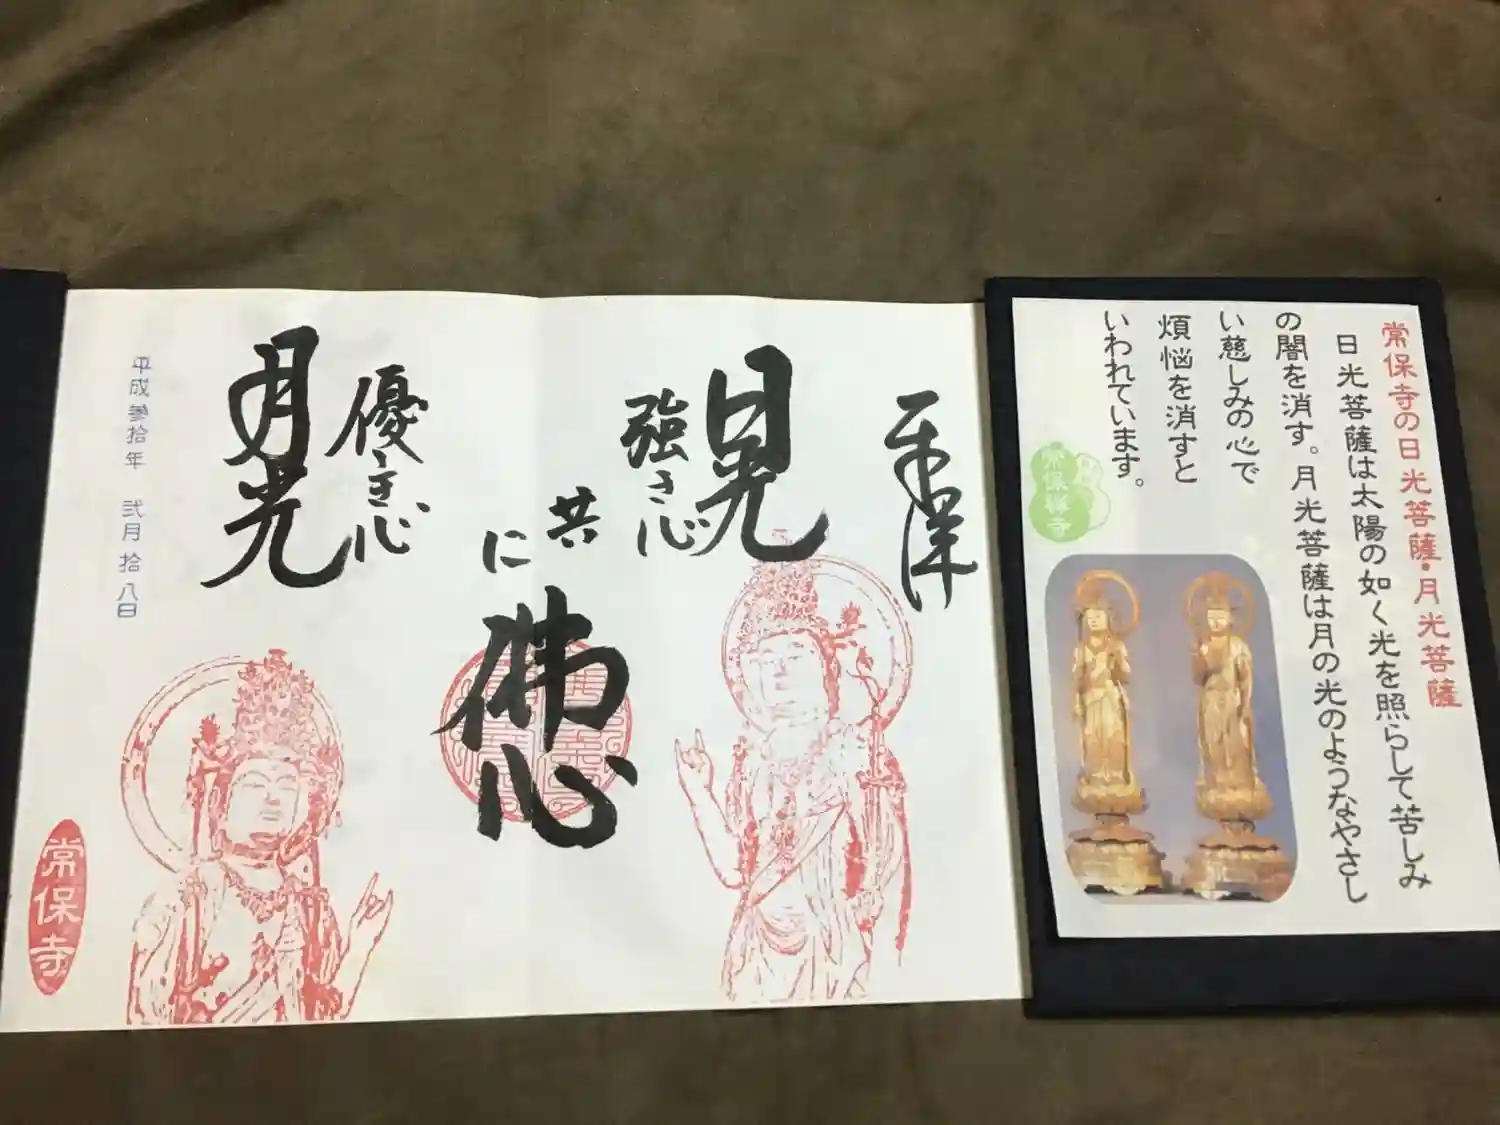 常保寺の日光菩薩・月光菩薩
日光菩薩は太陽の如く光を照らして苦しみ
の闇を消す。月光菩薩は月の光のようなやさし
い慈しみの心で
煩悩を消すと
いわれています。
常保禅寺
奉拝
日光
強き心
共
に
佛心
優しき心
月光
平成参拾年 弐月 拾八日
常保寺